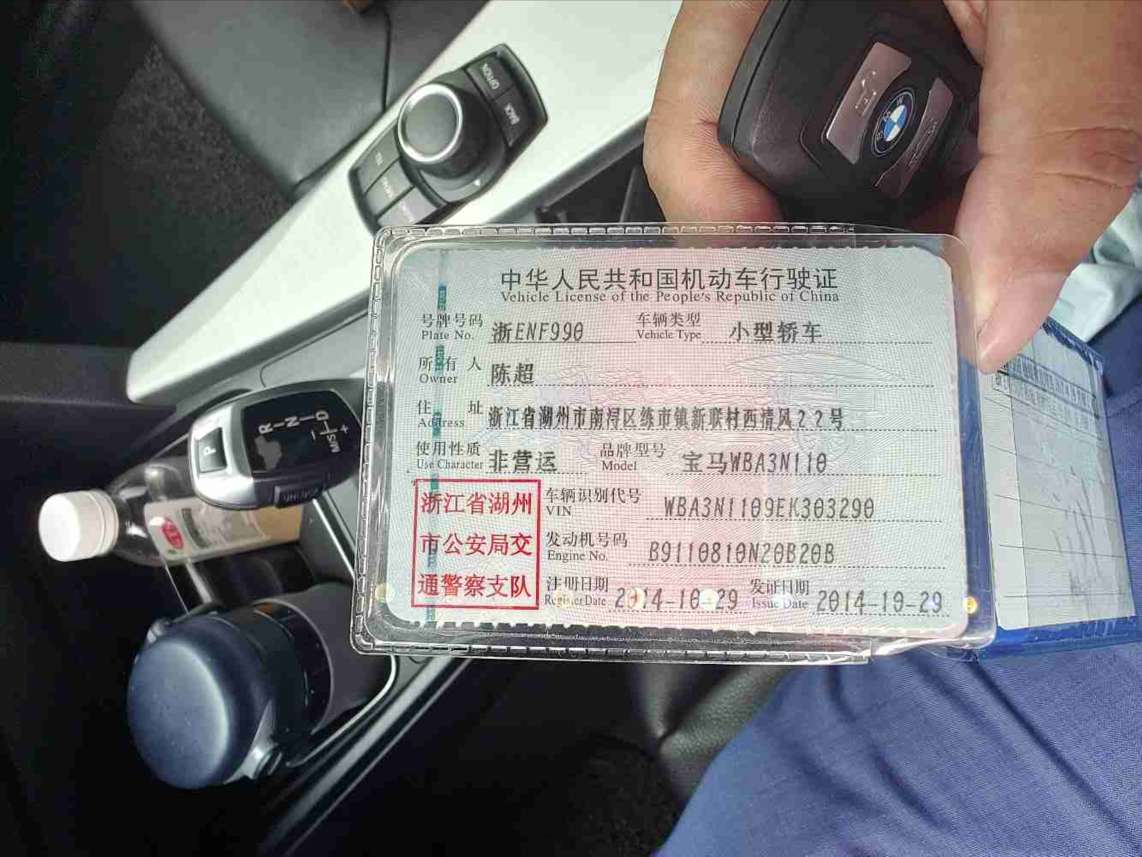 中华人民共和国机动车行驶证
Vehicle License of the People's Republic of China
号牌号码 浙ENF990 车辆类型 小型轿车
Plate No. Vehicle Type
所有人 陈超
Owner
住址 浙江省湖州市南浔区练市镇新联村西清风22号
Address
使用性质 非营运 品牌型号 宝马WBA3N110
Use Character Model
浙江省湖州
市公安局交
通警察支队
车辆识别代号 WBA3N1109EK303290
VIN
发动机号码 B9110810N20B20B
Engine No.
注册日期 2014-10-29 发证日期 2014-10-29
Register Date Issue Date
OPTION
BACK
MENU
P
R
N
D
M/S
+
-